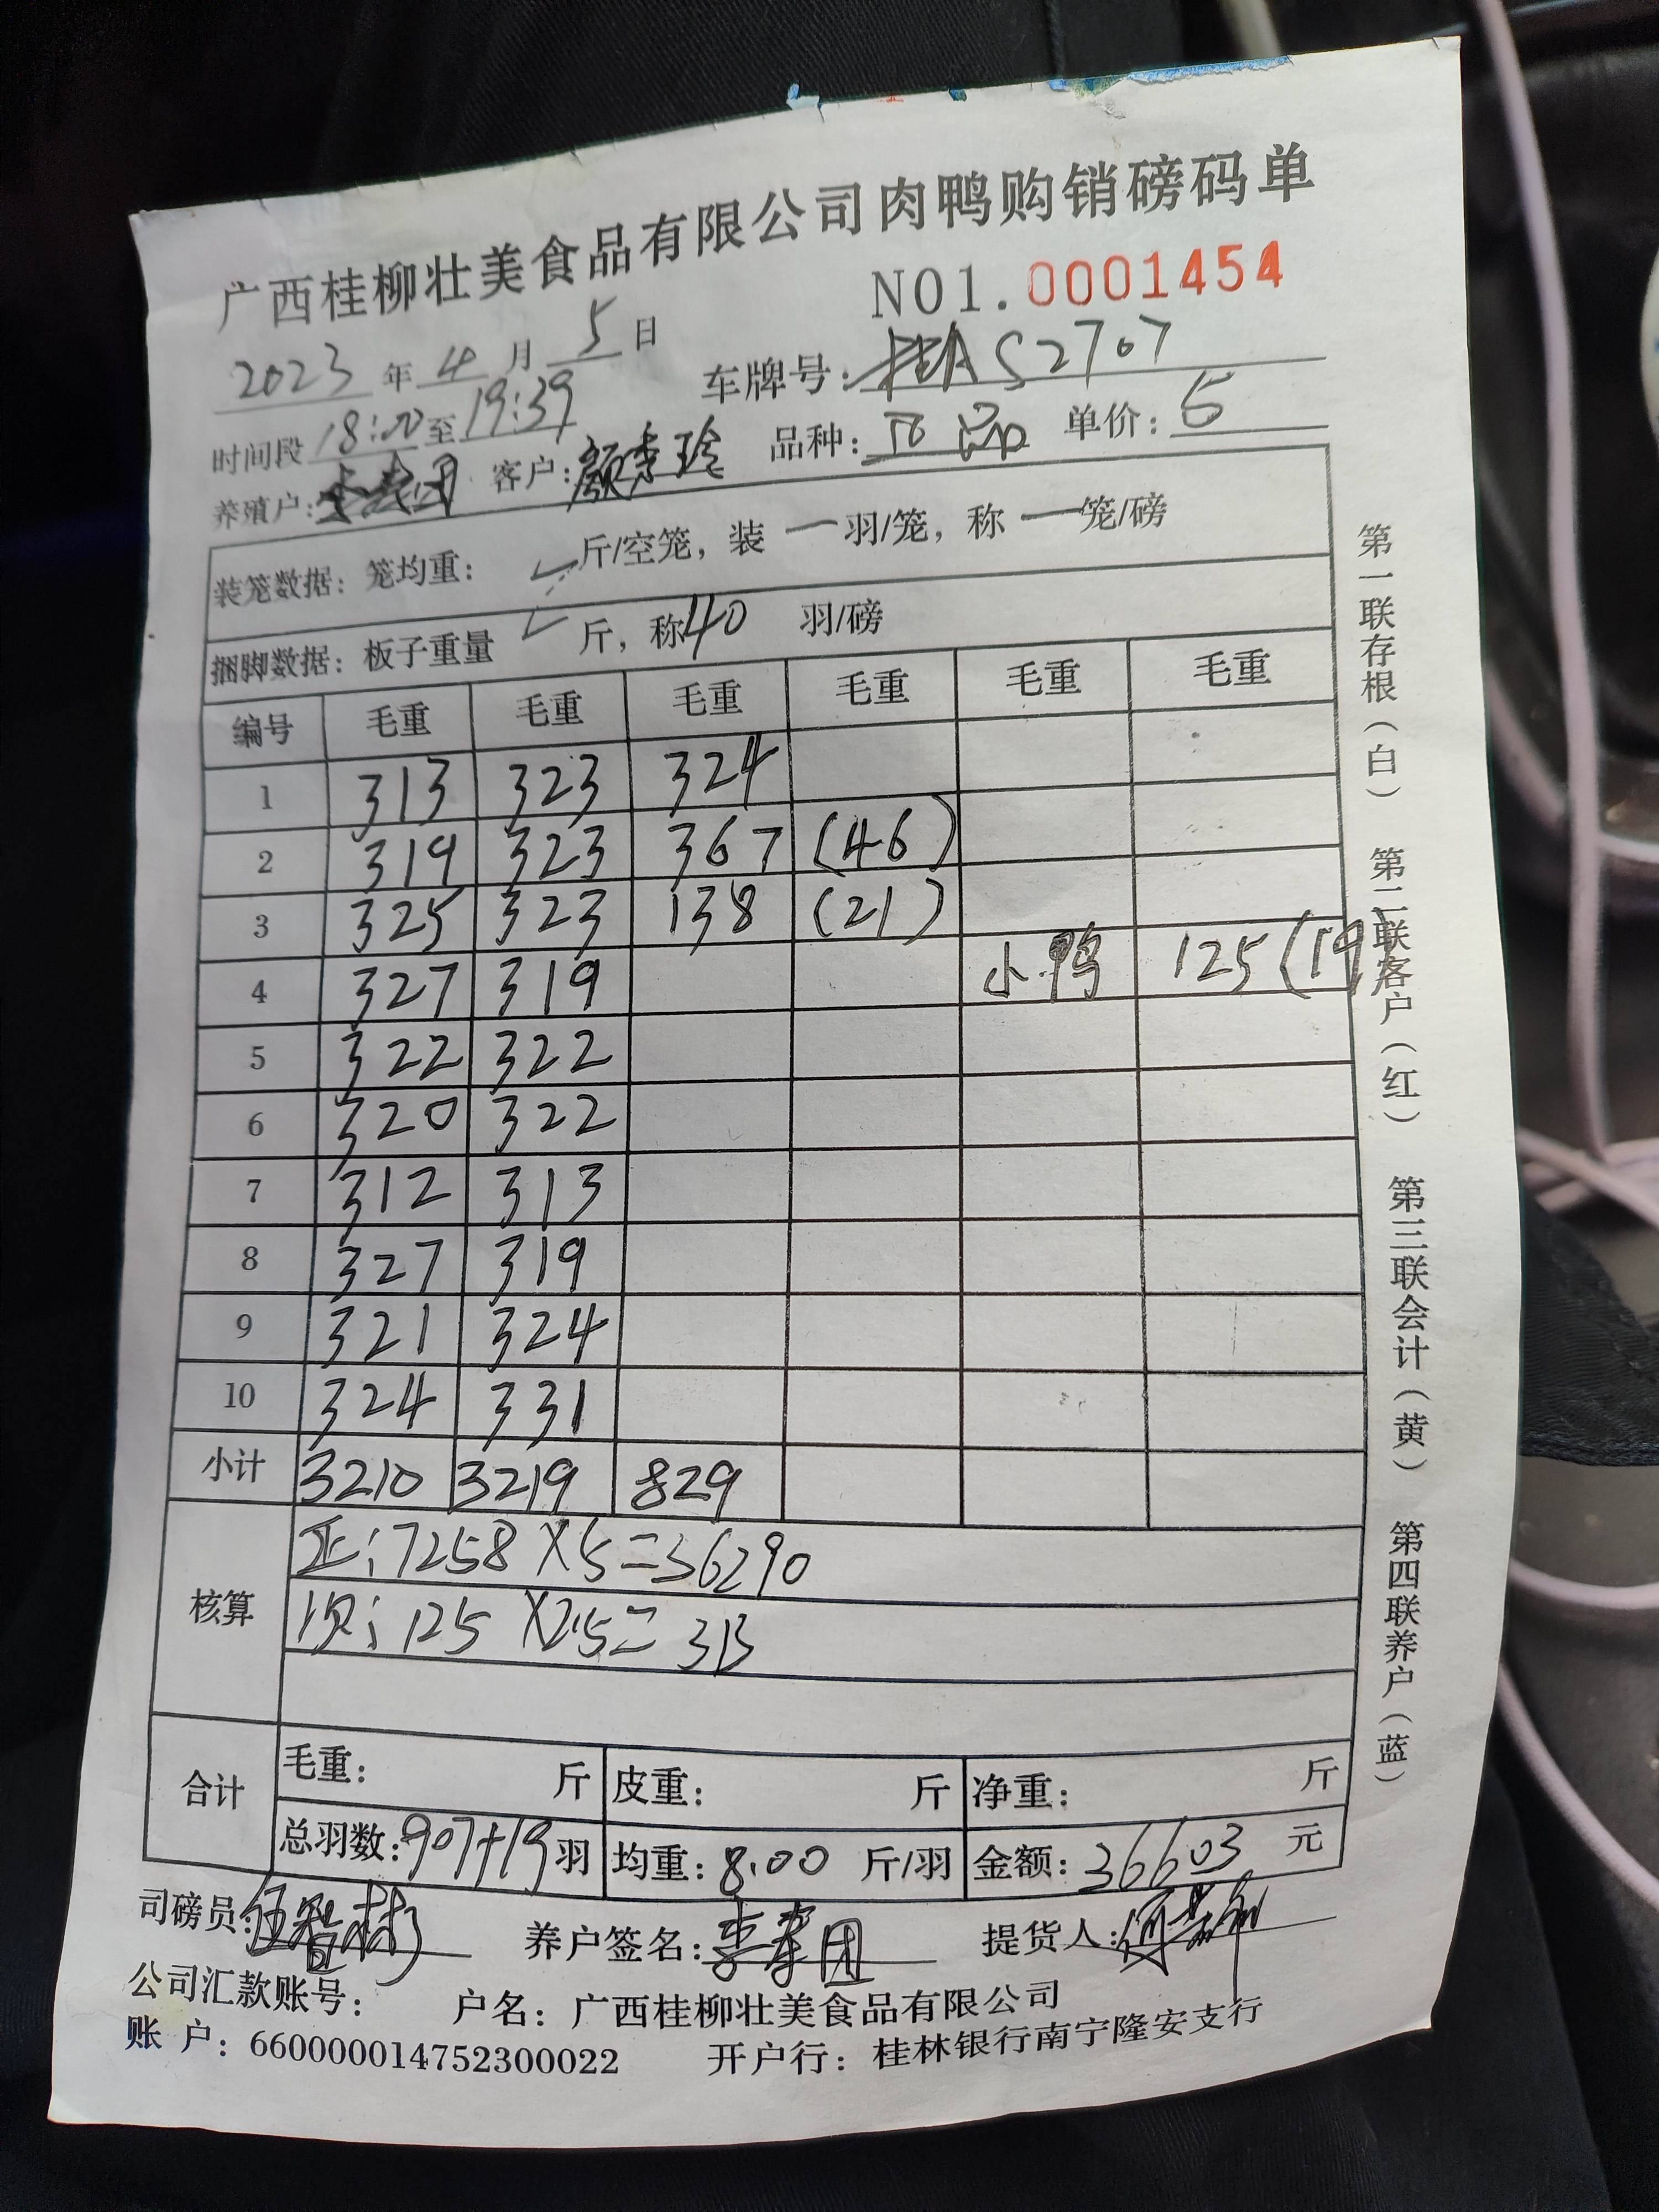 广西桂柳壮美食品有限公司肉鸭购销磅码单
NO1.0001454
2023年4月5日 车牌号:桂AS2707
时间段18:00至19:39 品种: 单价:5
养殖户:李春团 客户:颜李玲
装笼数据:笼均重: 斤/空笼,装一羽/笼,称一笼/磅
捆脚数据:板子重量 斤,称40羽/磅
编号 毛重 毛重 毛重 毛重 毛重 毛重
1 313 323 324
2 319 323 367 (46)
3 325 323 138 (21)
4 327 319 小鸭 125(19)
5 322 322
6 320 322
7 312 313
8 327 319
9 321 324
10 324 331
小计 3210 3219 829
核算 正:7258×5=36290
次:125×2.5=313
合计 毛重: 斤 皮重: 斤 净重: 斤
总羽数:907+19羽 均重:8.00斤/羽 金额:36603元
司磅员:伍智彬 养户签名:李春团 提货人:
公司汇款账号: 户名:广西桂柳壮美食品有限公司
账 户:660000014752300022 开户行:桂林银行南宁隆安支行
第一联存根(白) 第二联客户(红) 第三联会计(黄) 第四联养户(蓝)